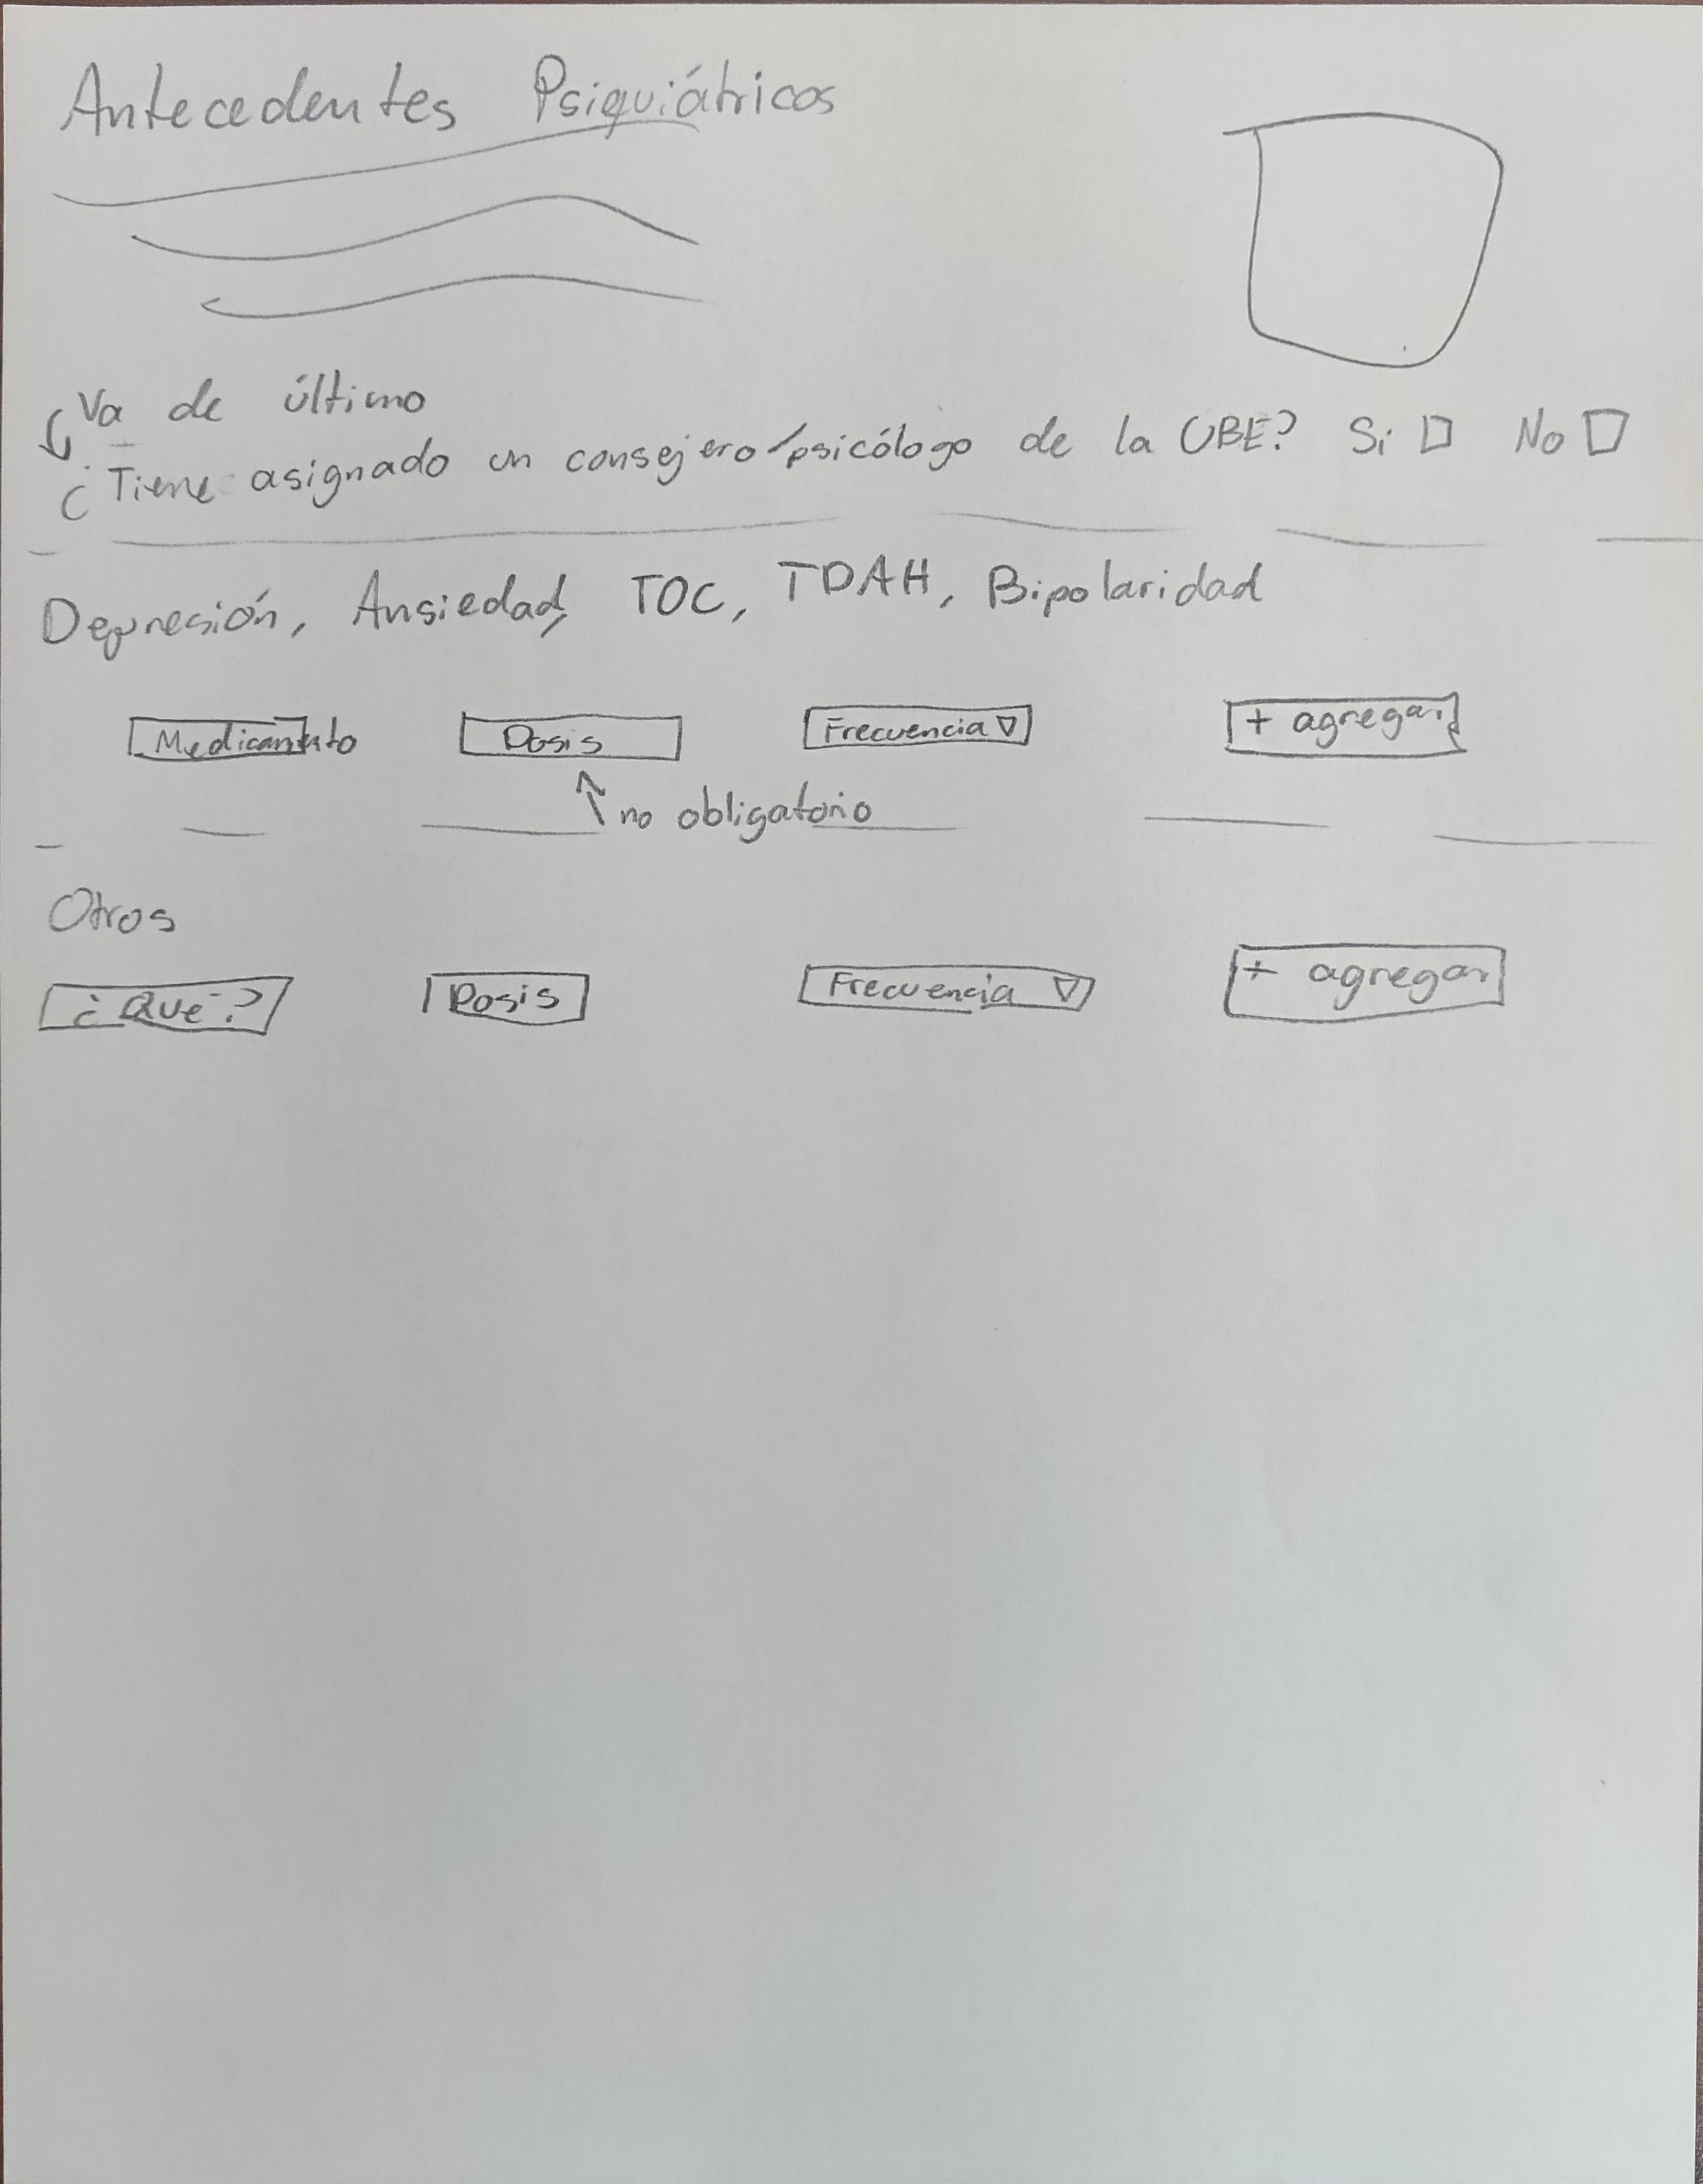 Antecedentes Psiquiátricos
Va de último
¿Tiene asignado un consejero/psicólogo de la UBE? Si No
Depresión, Ansiedad, TOC, TDAH, Bipolaridad
Medicamento Dosis Frecuencia + agregar
no obligatorio
Otros
¿Qué? Dosis Frecuencia + agregar